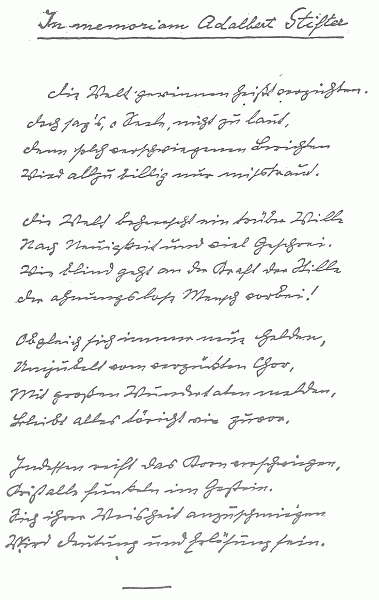 In memoriam Adalbert Stifter
Die Welt gewinnen heißt verzichten.
Doch sag's, o Seele, nicht zu laut,
Denn solch verschwiegenen Berichten
Wird allzu billig nur misstraut.
Die Welt beherrscht ein trüber Wille
Nach Neuigkeit und viel Geschrei.
Wie blind geht an der Kraft der Stille
Der ahnungslose Mensch vorbei!
Obgleich sich immer neue Helden,
Umjubelt vom verzückten Chor,
Mit großen Wundertaten melden,
Bleibt alles töricht wie zuvor.
Indessen reift das Korn verschwiegen,
Kristalle funkeln im Gestein.
Sich ihrer Weisheit anzuschmiegen
Wird Deutung und Erlösung sein.